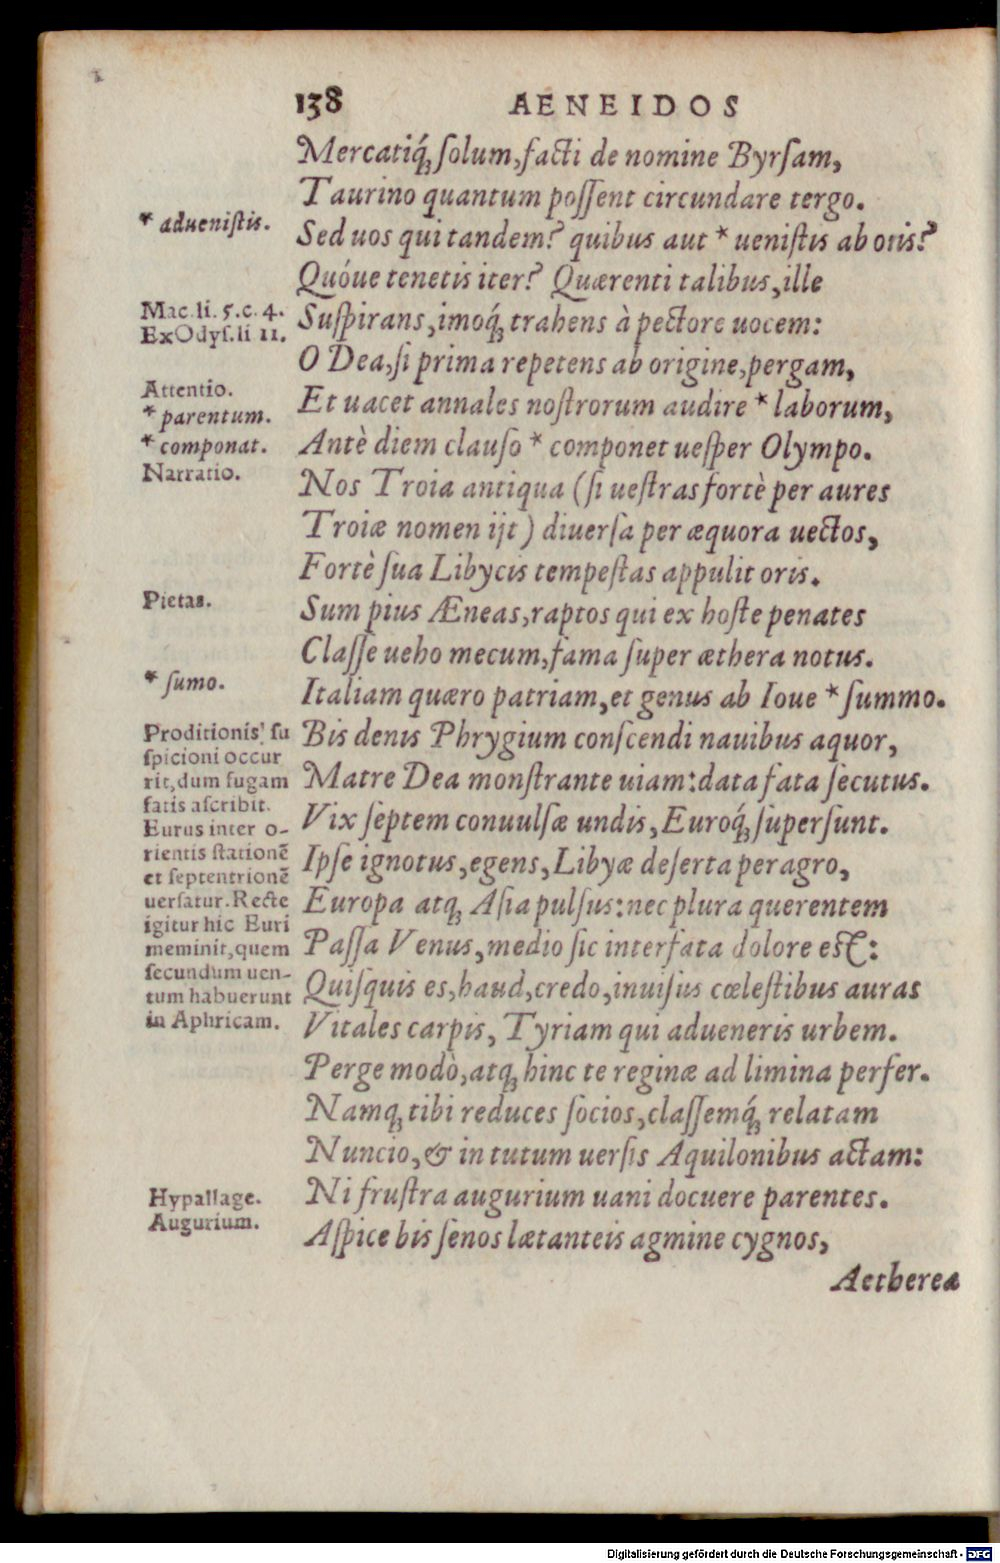 138 AENEIDOS
Mercatiq́ꝫ ſolum, facti de nomine Byrſam,
Taurino quantum poſſent circundare tergo.
* adueniſtis.
Sed uos qui tandem? quibus aut * ueniſtis ab oris?
Quóue tenetis iter? Quærenti talibus, ille
Mac. li. 5. c. 4.
Ex Odyſ. li 11.
Suſpirans, imoq́ꝫ trahens à pectore uocem:
O Dea, ſi prima repetens ab origine, pergam,
Attentio.
* parentum.
Et uacet annales noſtrorum audire * laborum,
* componat.
Antè diem clauſo * componet ueſper Olympo.
Narratio.
Nos Troia antiqua (ſi ueſtras fortè per aures
Troiæ nomen ijt) diuerſa per æquora uectos,
Fortè ſua Libycis tempeſtas appulit oris.
Pietas.
Sum pius Æneas, raptos qui ex hoſte penates
Claſſe ueho mecum, fama ſuper æthera notus.
* ſumo.
Italiam quæro patriam, et genus ab Ioue * ſummo.
Proditionis' ſu
ſpicioni occur
rit, dum fugam
fatis aſcribit.
Eurus inter o-
rientis ſtationē
et ſeptentrionē
uerſatur. Recte
igitur hic Euri
meminit, quem
ſecundum uen-
tum habuerunt
in Aphricam.
Bis denis Phrygium conſcendi nauibus aquor,
Matre Dea monſtrante uiam: data fata ſecutus.
Vix ſeptem conuulſæ undis, Euroq́ꝫ ſuperſunt.
Ipſe ignotus, egens, Libyæ deſerta peragro,
Europa atqꝫ Aſia pulſus: nec plura querentem
Paſſa Venus, medio ſic interfata dolore eſt:
Quiſquis es, haud, credo, inuiſus cœleſtibus auras
Vitales carpis, Tyriam qui adueneris urbem.
Perge modò, atqꝫ hinc te reginæ ad limina perfer.
Namqꝫ tibi reduces ſocios, claſſemq́ꝫ relatam
Nuncio, & in tutum uerſis Aquilonibus actam:
Hypallage.
Augurium.
Ni fruſtra augurium uani docuere parentes.
Aſpice bis ſenos lætanteis agmine cygnos,
Aetherea
Digitalisierung gefördert durch die Deutsche Forschungsgemeinschaft - DFG